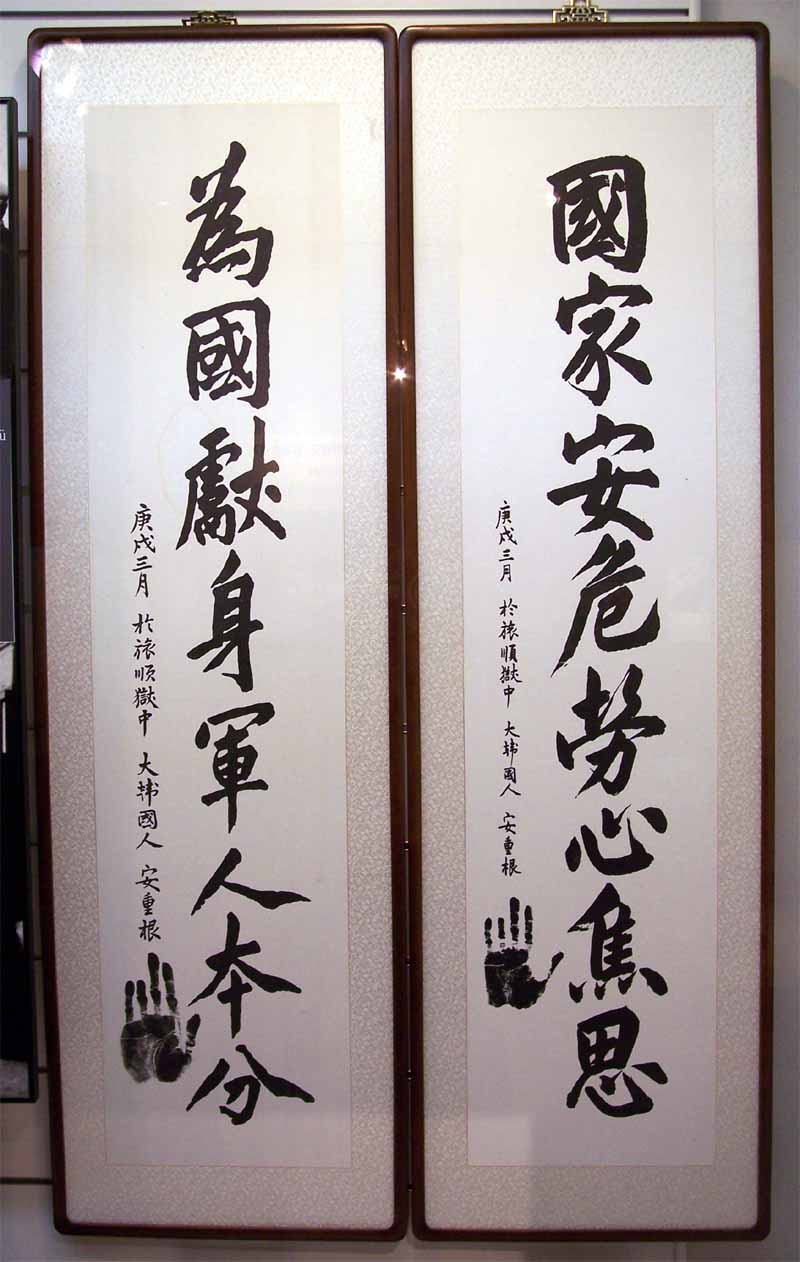 國家安危勞心焦思
庚戌三月 於旅順獄中 大韓國人 安重根
為國獻身軍人本分
庚戌三月 於旅順獄中 大韓國人 安重根